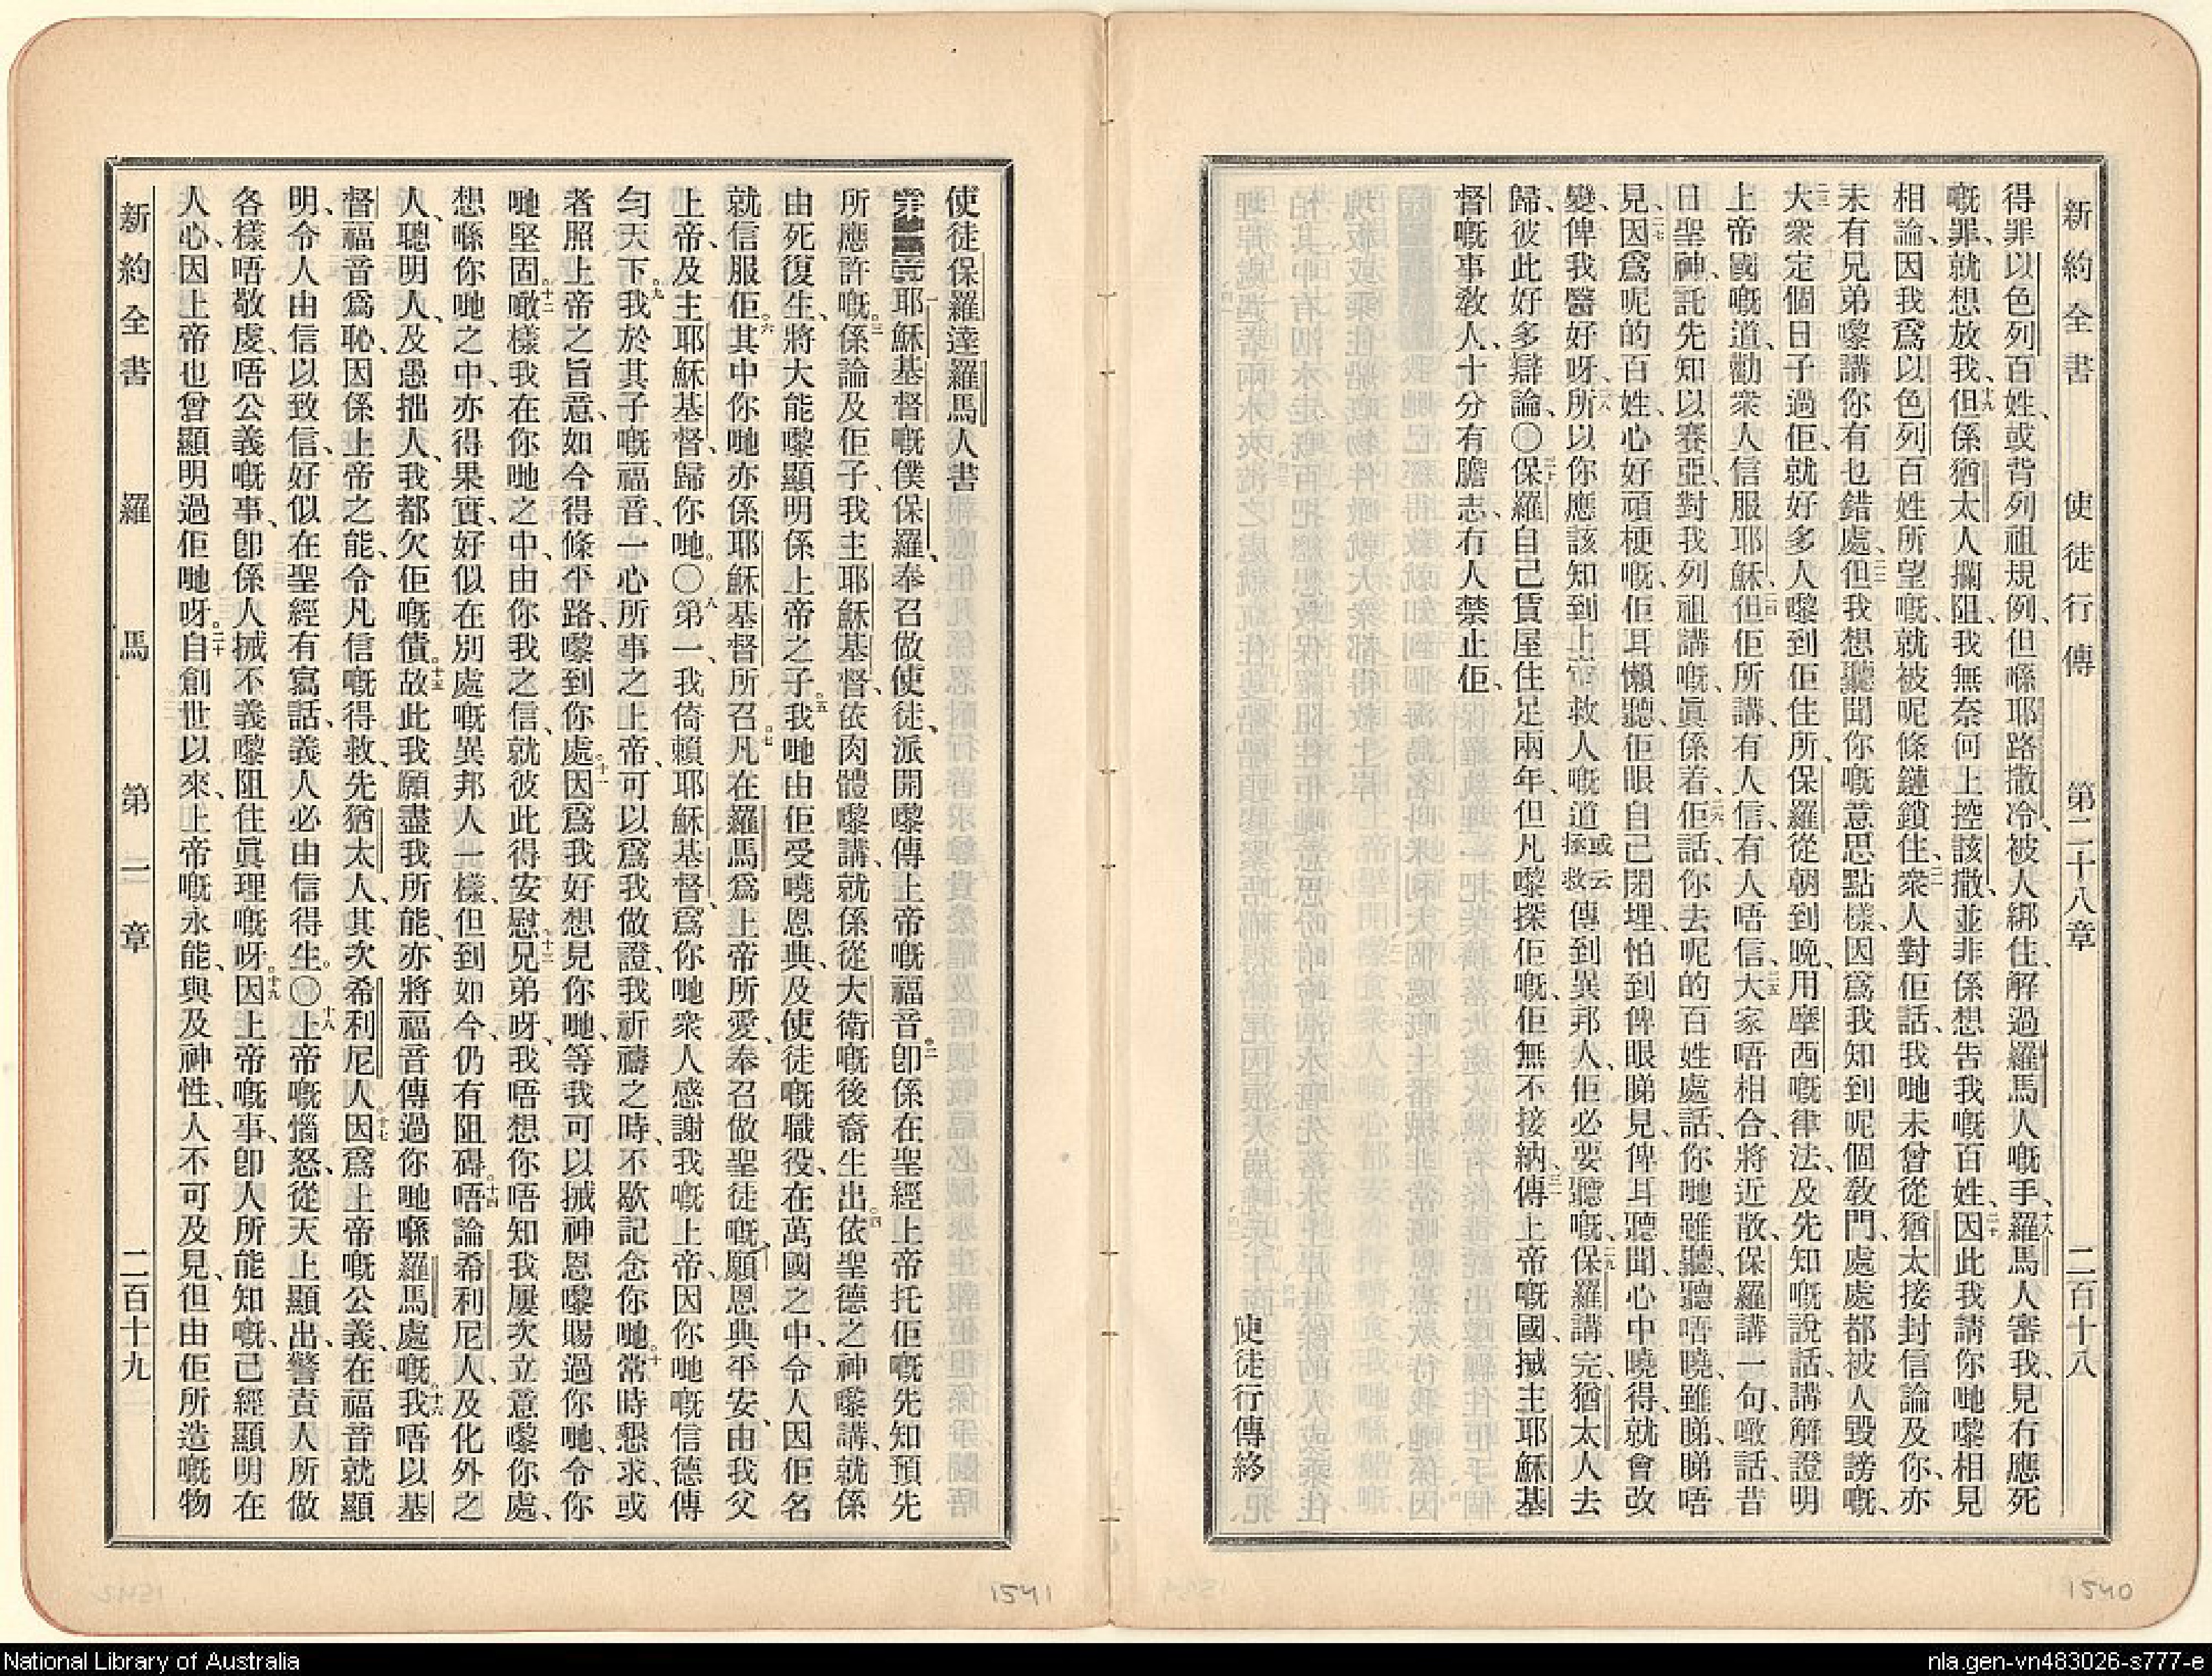 新約全書 使徒行傳 第二十八章 二百十八
得罪以色列百姓、或背列祖規例、但喺耶路撒冷、被人綁住、解過羅馬人嘅手、十八羅馬人審我、見冇應死
嘅罪、就想放我、十九但係猶太人攔阻、我無奈何上控該撒、並非係想告我嘅百姓、二十因此我請你哋嚟相見
相論、因我爲以色列百姓所望嘅、就被呢條鏈鎖住、二一衆人對佢話、我哋未曾從猶太接封信論及你、亦
未有兄弟嚟講你有乜錯處、二二但我想聽聞你嘅意思點樣、因爲我知到呢個敎門、處處都被人毀謗嘅、
二三大衆定個日子過佢、就好多人嚟到佢住所、保羅從朝到晚、用摩西嘅律法、及先知嘅說話、講解證明
上帝國嘅道、勸衆人信服耶穌、二四但佢所講、有人信、有人唔信、二五大家唔相合、將近散、保羅講一句噉話、昔
日聖神、託先知以賽亞對我列祖講嘅、眞係着、二六佢話、你去呢的百姓處話、你哋雖聽聽唔曉、雖睇睇唔
見、二七因爲呢的百姓、心好頑梗嘅、佢耳懶聽、佢眼自己閉埋、怕到俾眼睇見、俾耳聽聞、心中曉得、就會改
變、俾我醫好呀、二八所以你應該知到上帝救人嘅道或云拯救傳到異邦人、佢必要聽嘅、二九保羅講完、猶太人去
歸、彼此好多辯論、〇三十保羅自己賃屋住足兩年、但凡嚟探佢嘅、佢無不接納、三一傳上帝嘅國、摵主耶穌基
督嘅事敎人、十分有膽志、冇人禁止佢、
使徒行傳終
使徒保羅達羅馬人書
一耶穌基督嘅僕保羅、奉召做使徒、派開嚟傳上帝嘅福音、二卽係在聖經上帝托佢嘅先知預先
所應許嘅、三係論及佢子、我主耶穌基督、依肉體嚟講、就係從大衛嘅後裔生出、四依聖德之神嚟講、就係
由死復生、將大能嚟顯明係上帝之子、五我哋由佢受曉恩典、及使徒嘅職役、在萬國之中、令人因佢名
就信服佢、六其中你哋亦係耶穌基督所召、七凡在羅馬爲上帝所愛、奉召做聖徒嘅、願恩典平安、由我父
上帝、及主耶穌基督、歸你哋。〇八第一、我倚賴耶穌基督、爲你哋衆人感謝我嘅上帝、因你哋嘅信德傳
勻天下、九我於其子嘅福音、一心所事之上帝、可以爲我做證、我祈禱之時、不歇記念你哋、十常時懇求、或
者照上帝之旨意、如今得條平路、嚟到你處、十一因爲我好想見你哋、等我可以摵神恩嚟賜過你哋、令你
哋堅固、十二噉樣我在你哋之中、由你我之信、就彼此得安慰、十三兄弟呀、我唔想你唔知我屢次立意嚟你處、
想喺你哋之中、亦得果實、好似在別處嘅異邦人一樣、但到如今仍有阻碍、十四唔論希利尼人、及化外之
人、聰明人、及愚拙人、我都欠佢嘅債、十五故此我願盡我所能、亦將福音傳過你哋喺羅馬處嘅、十六我唔以基
督福音爲恥、因係上帝之能、令凡信嘅得救、先猶太人、其次希利尼人、十七因爲上帝嘅公義、在福音就顯
明、令人由信以致信、好似在聖經有寫話、義人必由信得生。〇十八上帝嘅惱怒、從天上顯出、警責人所做
各樣唔敬虔、唔公義嘅事、卽係人摵不義嚟阻住眞理嘅呀。十九因上帝嘅事、卽人所能知嘅、已經顯明在
人心、因上帝也曾顯明過佢哋呀。二十自創世以來、上帝嘅永能、與及神性、人不可及見、但由佢所造嘅物
新約全書 羅馬 第一章 二百十九
1540
1541
National Library of Australia
nla.gen-vn483026-s777-e